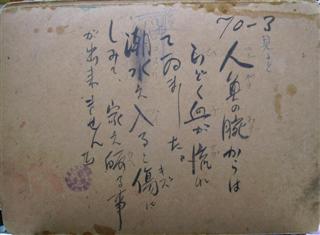 70-3
人魚の腕からは
ひどく血が流れ
て居ました。
潮水え入ると傷に
キズ
しみて、家え帰る事
が出来ませんでし